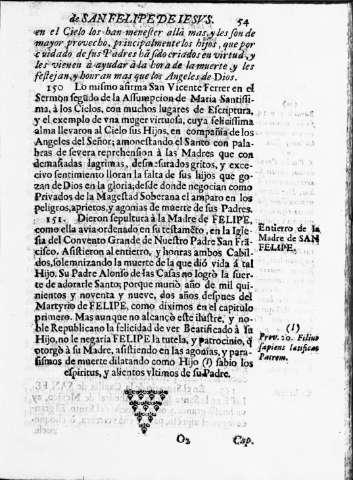 de SAN FELIPE DE IESVS. 54
en el Cielo los han menester allà mas, y les son de
mayor provecho, principalmente los hijos, que por
cuidado de sus Padres hã sido criados en virtud, y
les vienen à ayudar à la hora de la muerte, y les
festejan, y honran mas que los Angeles de Dios.
150 Lo mismo afirma San Vicente Ferrer en el
Sermon segũdo de la Assumpcion de Maria Santissi-
ma, à los Cielos, con muchos lugares de Escriptura,
y el exemplo de vna muger virtuosa, cuya felicissima
alma llevaron al Cielo sus Hijos, en compañia de los
Angeles del Señor; amonestando el Santo con pala-
bras de severa reprehension à las Madres que con
demasiadas lagrimas, desmesurados gritos, y exce-
civo sentimiento lloran la falta de sus hijos que go-
zan de Dios en la gloria; desde donde negocian como
Privados de la Magestad Soberana el amparo en los
peligros, aprietos, y agonias de muerte de sus Padres.
151. Dieron sepultura à la Madre de FELIPE,
como ella avia ordenado en su testamẽto, en la Igle-
sia del Convento Grande de Nuestro Padre San Frã-
cisco. Asistieron al entierro, y honras ambos Cabil-
dos, solemnizando la muerte de la que diò vida á tal
Hijo. Su Padre Alonso de las Casas no logrò la suer-
te de adorarle Santo; porque muriò año de mil qui-
nientos y noventa y nueve, dos años despues del
Martyrio de FELIPE, como diximos en el capitulo
primero. Mas aunque no alcançò este ilustre, y no-
ble Republicano la felicidad de ver Beatificado à su
Hijo, no le negaria FELIPE la tutela, y patrocinio, q̃
otorgò à su Madre, asistiendo en las agonias, y para-
sismos de muerte dilatando como Hijo (1) sabio los
espiritus, y alientos vltimos de su Padre.
Entierro de la
Madre de SAN
FELIPE.
(1)
Prov. 10. Filius
sapiens latificat
Patrem.
O2 Cap.